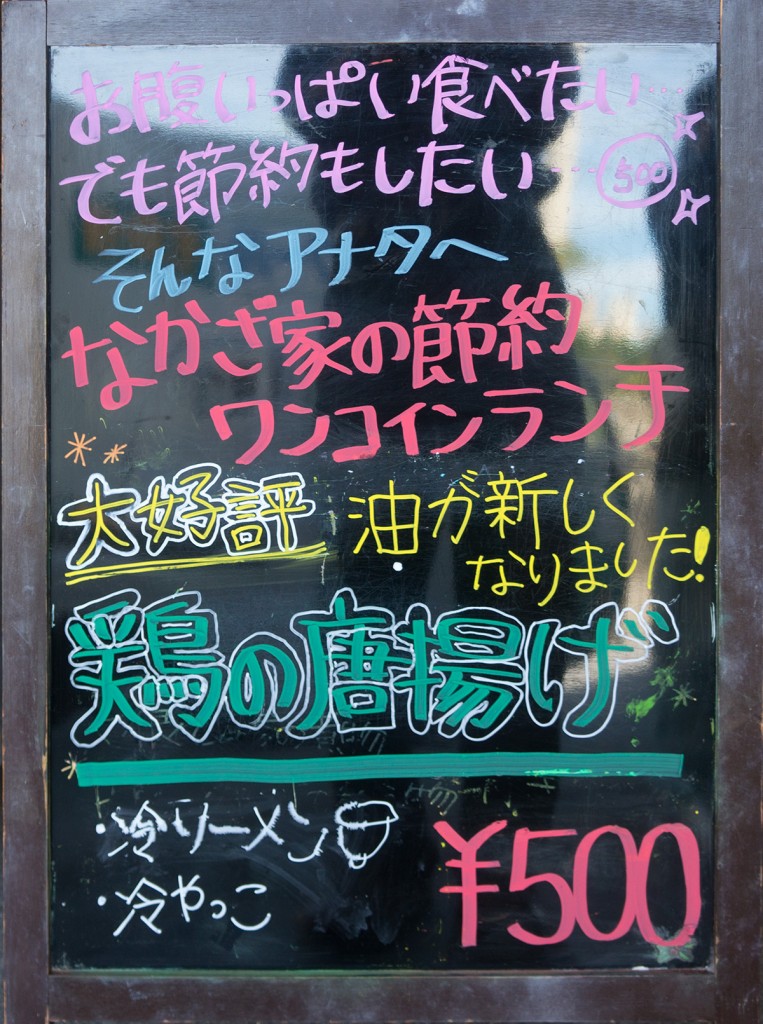 お腹いっぱい食べたい…
でも節約もしたい… 500
そんなアナタへ
なかざ家の節約
ワンコインランチ
大好評 油が新しく
なりました!
鶏の唐揚げ
・冷ラーメン
・冷やっこ
¥500